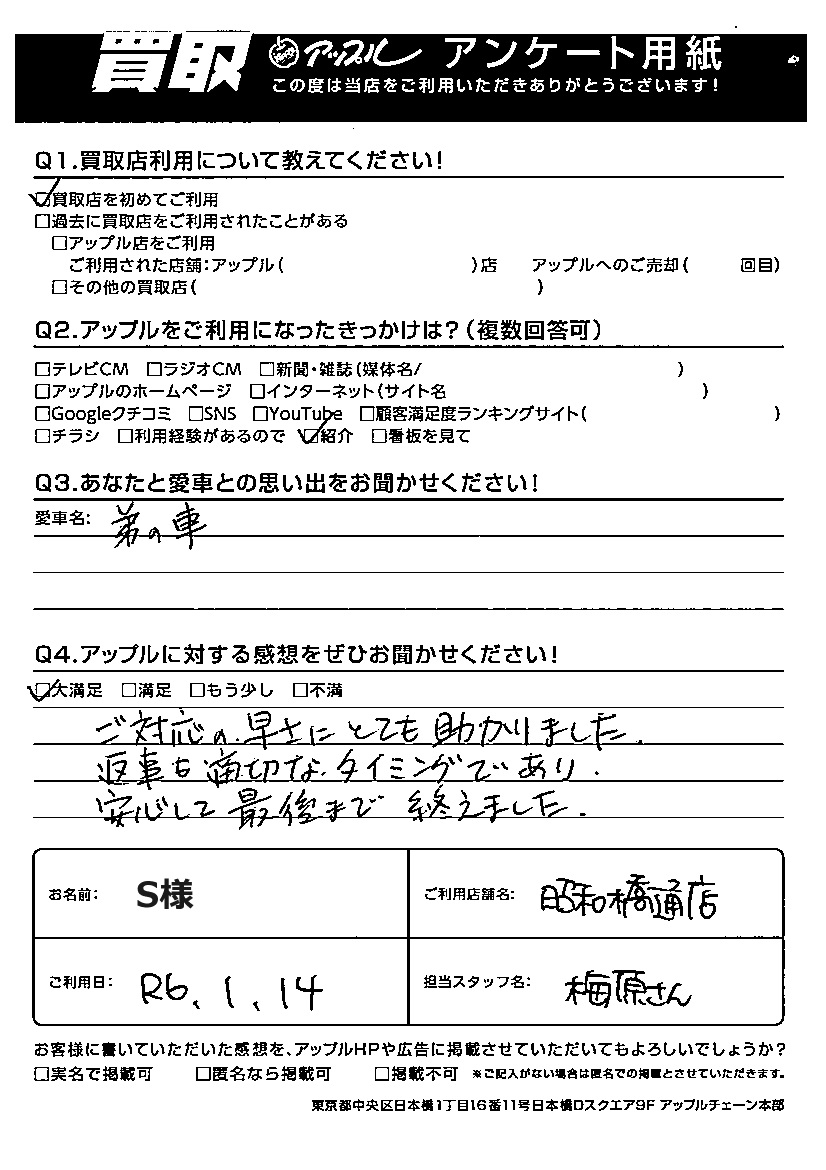 買取 アップル アンケート用紙
この度は当店をご利用いただきありがとうございます!
Q1.買取店利用について教えてください!
☑買取店を初めてご利用
□過去に買取店をご利用されたことがある
□アップル店をご利用
ご利用された店舗:アップル( )店 アップルへのご売却( 回目)
□その他の買取店( )
Q2.アップルをご利用になったきっかけは?(複数回答可)
□テレビCM □ラジオCM □新聞・雑誌(媒体名/ )
□アップルのホームページ □インターネット(サイト名 )
□Googleクチコミ □SNS □YouTube □顧客満足度ランキングサイト( )
□チラシ □利用経験があるので ☑紹介 □看板を見て
Q3.あなたと愛車との思い出をお聞かせください!
愛車名: 弟の車
Q4.アップルに対する感想をぜひお聞かせください!
☑大満足 □満足 □もう少し □不満
ご対応の早さにとても助かりました.
返事も適切なタイミングであり.
安心して最後まで終えました.
お名前: S様 ご利用店舗名: 昭和橋通店
ご利用日: R6.1.14 担当スタッフ名: 梅原さん
お客様に書いていただいた感想を、アップルHPや広告に掲載させていただいてもよろしいでしょうか?
□実名で掲載可 □匿名なら掲載可 □掲載不可 ※ご記入がない場合は匿名での掲載とさせていただきます。
東京都中央区日本橋1丁目16番11号日本橋Dスクエア9F アップルチェーン本部